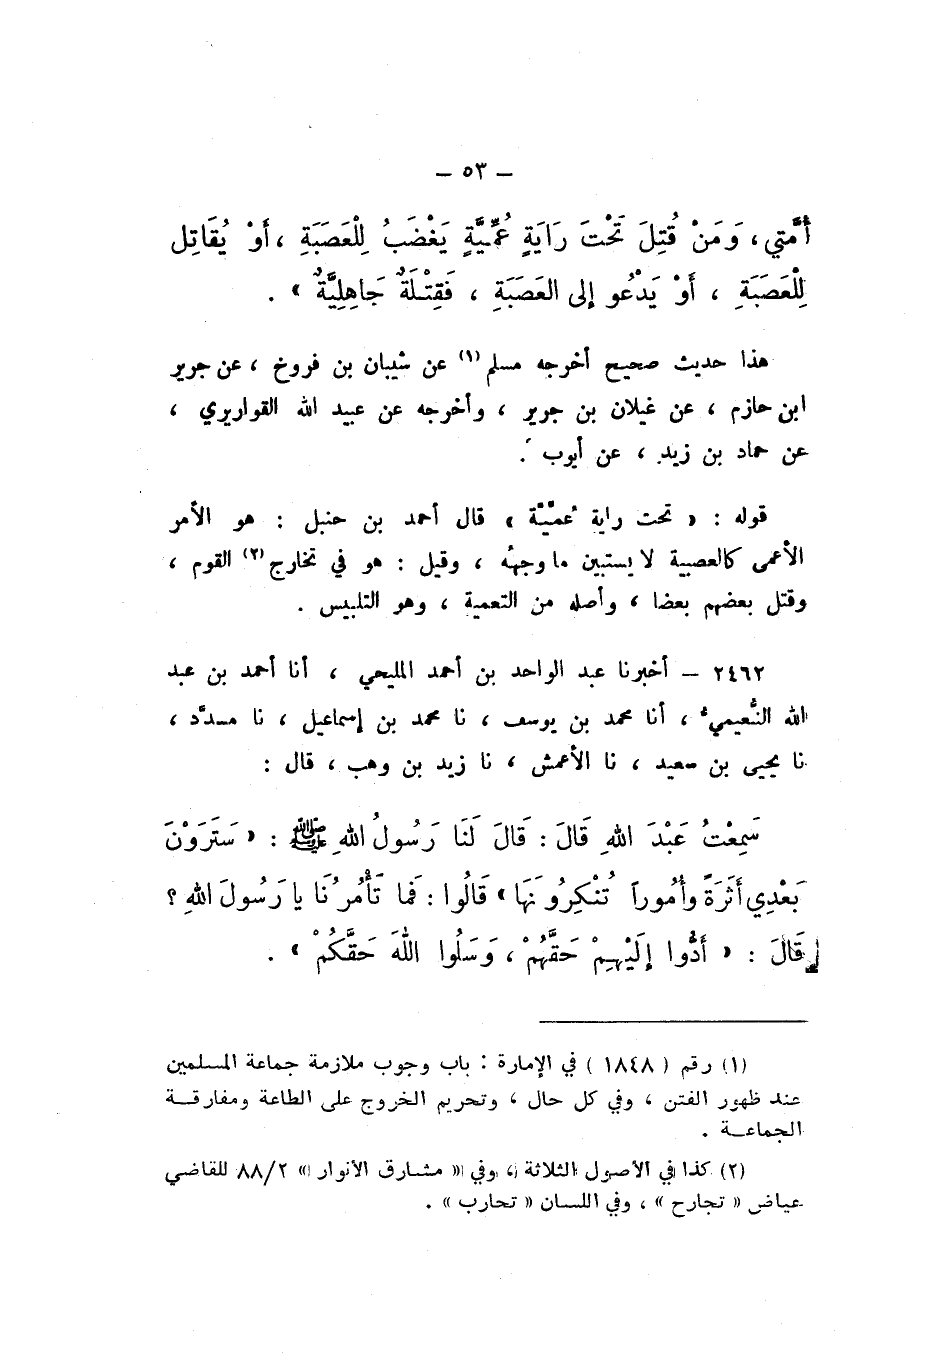 – ٥٣ –
أُمَّتي، وَمَنْ قُتِلَ تَحْتَ رَايَةٍ عُمِّيَّةٍ يَغْضَبُ لِلْعَصَبَةِ ، أَوْ يُقَاتِل
لِلْعَصَبَةِ ، أَوْ يَدْعُو إلى العَصَبَةِ ، فَقِتْلَةٌ جَاهِلِيَّةٌ » .
هذا حديث صحيح أخرجه مسلم (١) عن شيبان بن فروخ ، عن جرير
ابن حازم ، عن غيلان بن جرير ، وأخرجه عن عبيد الله القواريري ،
عن حماد بن زيد ، عن أيوب .
قوله : « تحت راية عُمِّيَّة » قال أحمد بن حنبل : هو الأمر
الأعمى كالعصبية لا يستبين ما وجهُه ، وقيل : هو في تخارج (٢) القوم ،
وقتل بعضهم بعضا ، وأصله من التعمية ، وهو التلبيس .
٢٤٦٢ – أخبرنا عبد الواحد بن أحمد المليحي ، أنا أحمد بن عبد
الله النُّعيمي ، أنا محمد بن يوسف ، نا محمد بن إسماعيل ، نا مسدَّد ،
نا يحيى بن سعيد ، نا الأعمش ، نا زيد بن وهب ، قال :
سَمِعْتُ عَبْدَ اللهِ قَالَ : قَالَ لَنَا رَسُولُ اللهِ ﷺ : « سَتَرَوْنَ
بَعْدِي أَثَرَةً وأُموراً تُنْكِرُونَهَا » قَالُوا : فَما تَأْمُرُنَا يا رَسُولَ اللهِ ؟
قَالَ : « أَدُّوا إِلَيْهِمْ حَقَّهُمْ ، وَسَلُوا اللهَ حَقَّكُمْ » .
(١) رقم ( ١٨٤٨ ) في الإمارة : باب وجوب ملازمة جماعة المسلمين
عند ظهور الفتن ، وفي كل حال ، وتحريم الخروج على الطاعة ومفارقة
الجماعة .
(٢) كذا في الأصول الثلاثة ، وفي « مشارق الأنوار » ٨٨/٢ للقاضي
عياض « تجارح » ، وفي اللسان « تحارب » .